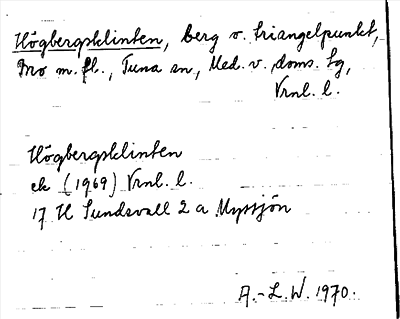 Högbergsklinten, berg o. triangelpunkt,
Mo m. fl., Tuna sn, Med. v. doms. tg,
Vrnl. l.
Högbergsklinten
ek (1969) Vrnl. l.
17 H Sundsvall 2 a Myssjön
A.-L. W. 1970.